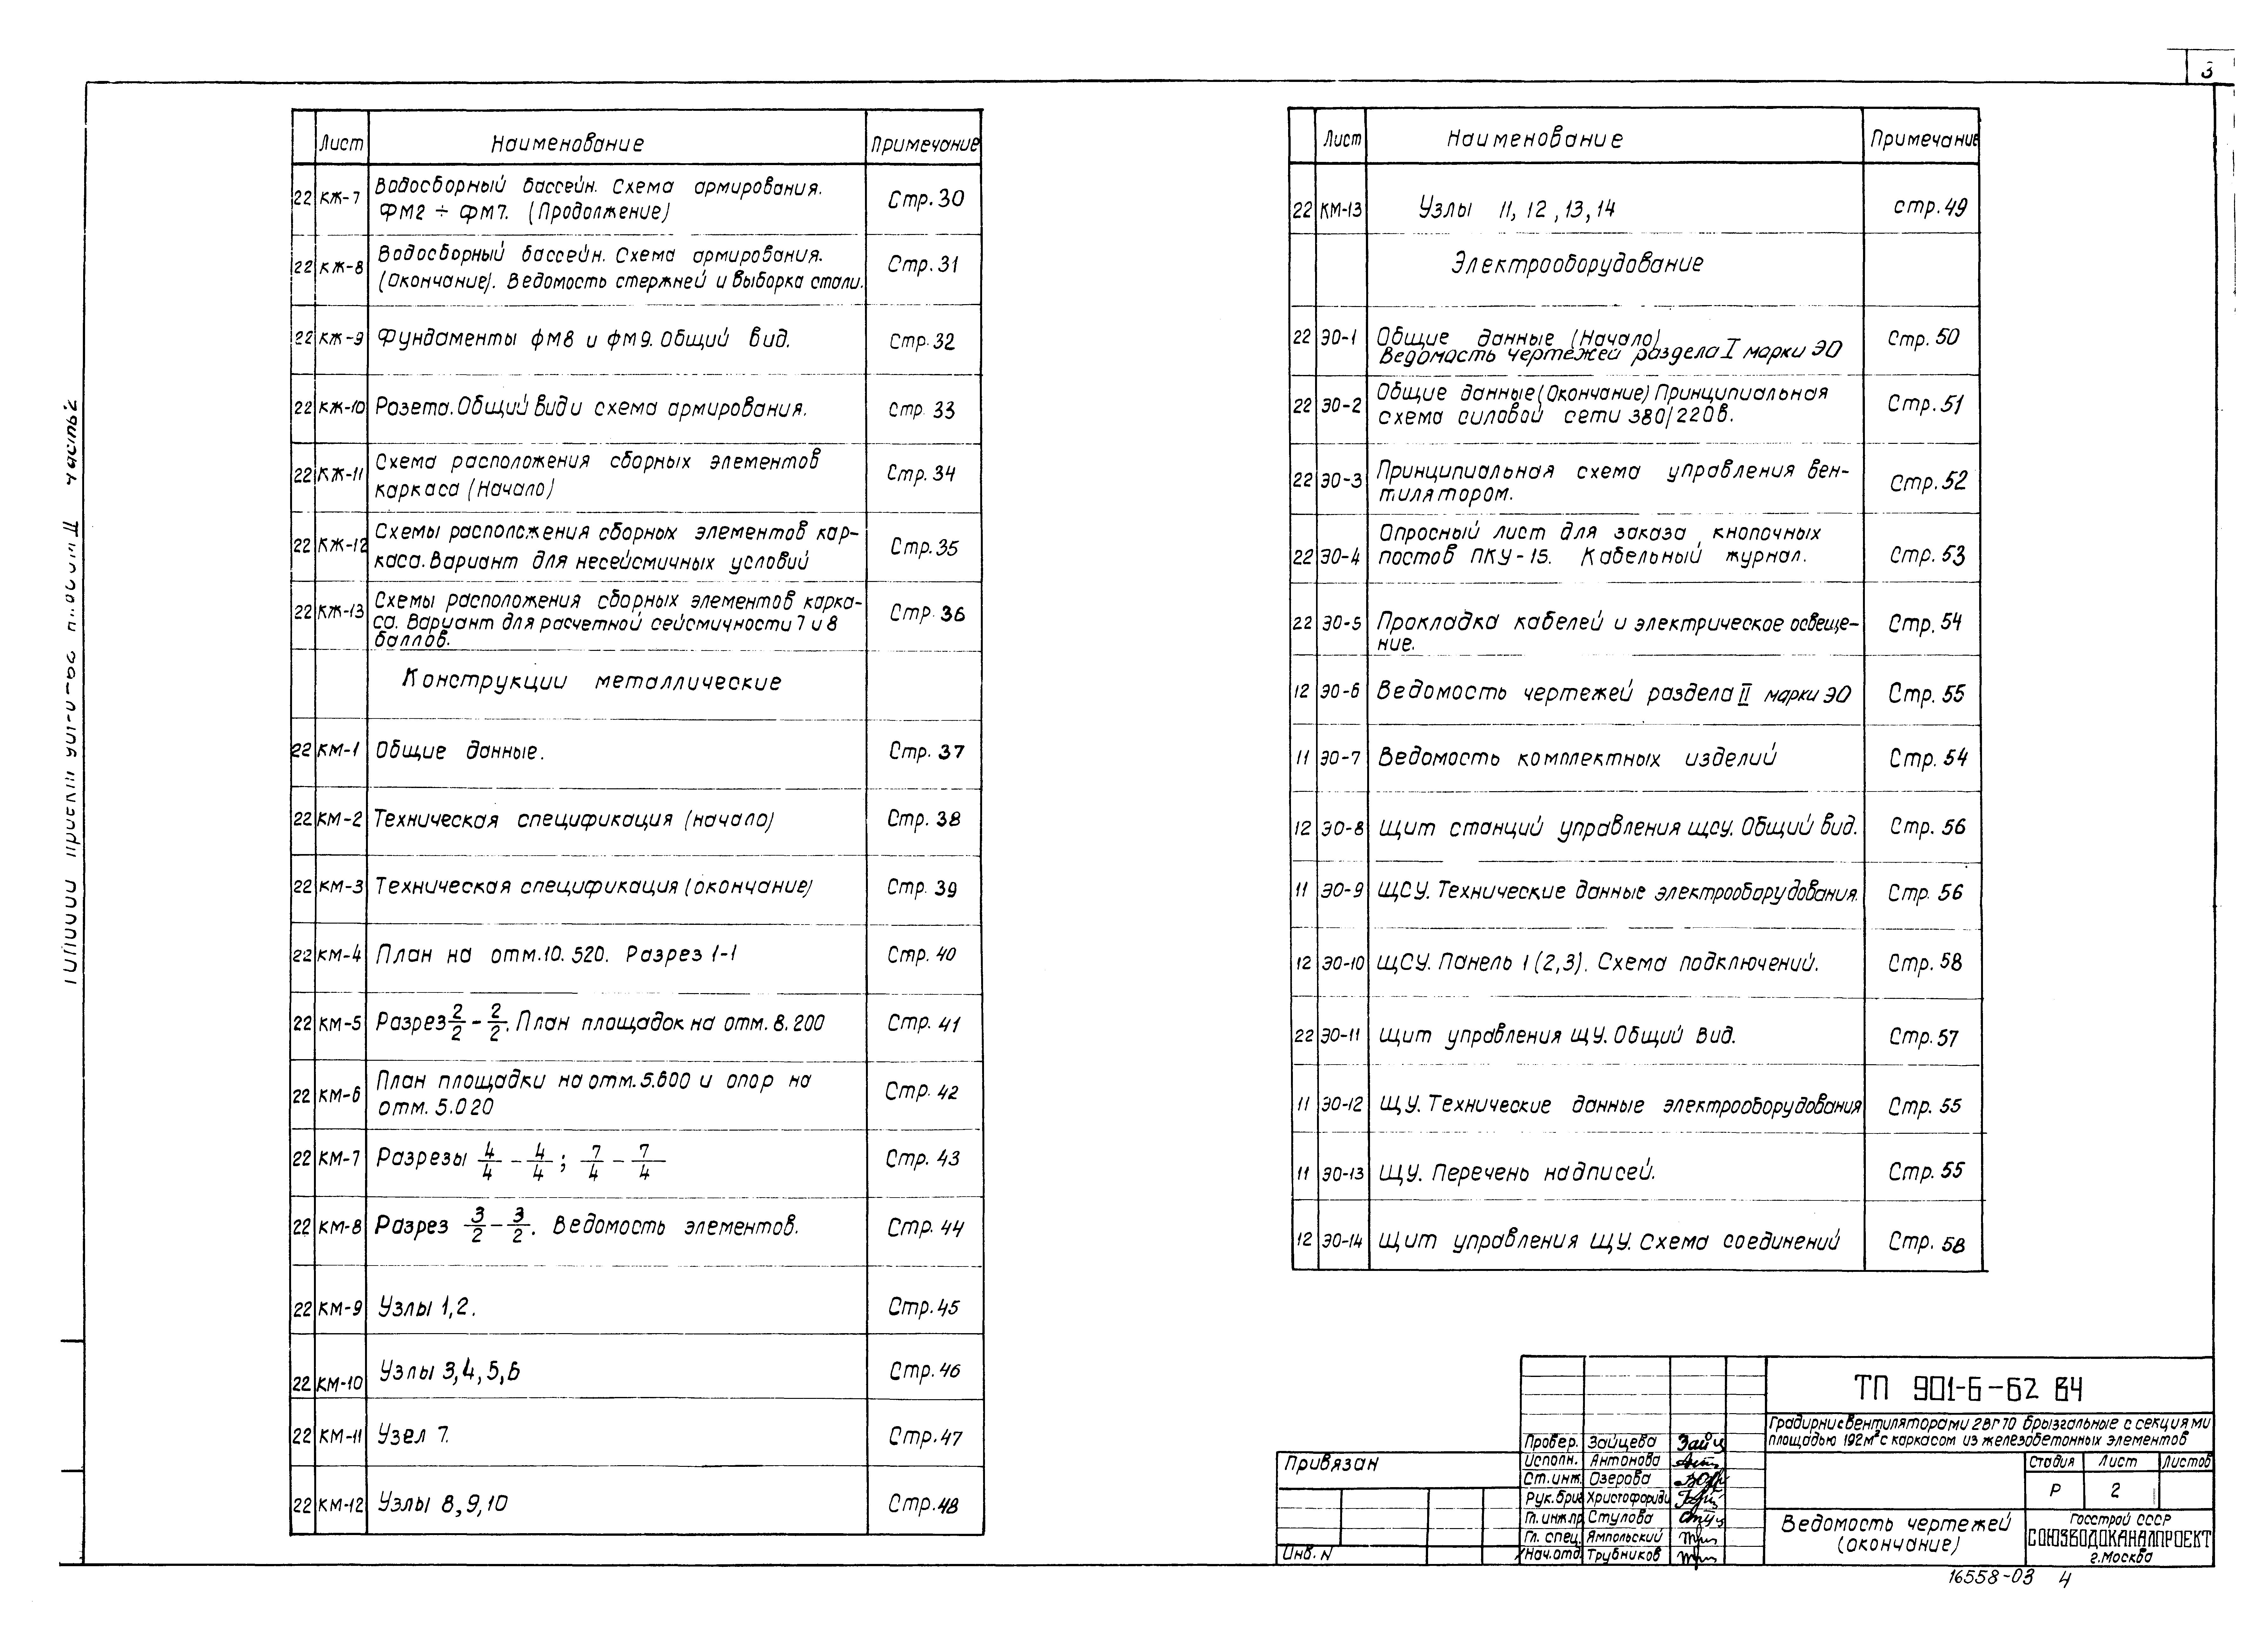 3
Лист Наименование Примечание
22 КЖ-7 Водосборный бассейн. Схема армирования.
ФМ2 ÷ ФМ7. (Продолжение) Стр. 30
22 КЖ-8 Водосборный бассейн. Схема армирования.
(Окончание). Ведомость стержней и выборка стали. Стр. 31
22 КЖ-9 Фундаменты ФМ8 и ФМ9. Общий вид. Стр. 32
22 КЖ-10 Розета. Общий вид и схема армирования. Стр. 33
22 КЖ-11 Схема расположения сборных элементов
каркаса (Начало) Стр. 34
22 КЖ-12 Схемы расположения сборных элементов кар-
каса. Вариант для несейсмичных условий Стр. 35
22 КЖ-13 Схемы расположения сборных элементов карка-
са. Вариант для расчетной сейсмичности 7 и 8
баллов. Стр. 36
Конструкции металлические
22 КМ-1 Общие данные. Стр. 37
22 КМ-2 Техническая спецификация (начало) Стр. 38
22 КМ-3 Техническая спецификация (окончание) Стр. 39
22 КМ-4 План на отм. 10.520. Разрез 1-1 Стр. 40
22 КМ-5 Разрез 2/2 - 2/2. План площадок на отм. 8.200 Стр. 41
22 КМ-6 План площадки на отм. 5.600 и опор на
отм. 5.020 Стр. 42
22 КМ-7 Разрезы 4/4 - 4/4; 7/4 - 7/4 Стр. 43
22 КМ-8 Разрез 3/2 - 3/2. Ведомость элементов. Стр. 44
22 КМ-9 Узлы 1, 2. Стр. 45
22 КМ-10 Узлы 3, 4, 5, 6 Стр. 46
22 КМ-11 Узел 7. Стр. 47
22 КМ-12 Узлы 8, 9, 10 Стр. 48
Лист Наименование Примечание
22 КМ-13 Узлы 11, 12, 13, 14 стр. 49
Электрооборудование
22 ЭО-1 Общие данные (Начало)
Ведомость чертежей раздела I марки ЭО Стр. 50
22 ЭО-2 Общие данные (Окончание) Принципиальная
схема силовой сети 380/220в. Стр. 51
22 ЭО-3 Принципиальная схема управления вен-
тилятором. Стр. 52
22 ЭО-4 Опросный лист для заказа кнопочных
постов ПКУ-15. Кабельный журнал. Стр. 53
22 ЭО-5 Прокладка кабелей и электрическое освеще-
ние. Стр. 54
12 ЭО-6 Ведомость чертежей раздела II марки ЭО Стр. 55
11 ЭО-7 Ведомость комплектных изделий Стр. 54
12 ЭО-8 Щит станций управления ЩСУ. Общий вид. Стр. 56
11 ЭО-9 ЩСУ. Технические данные электрооборудования. Стр. 56
12 ЭО-10 ЩСУ. Панель 1 (2,3). Схема подключений. Стр. 58
22 ЭО-11 Щит управления ЩУ. Общий вид. Стр. 57
11 ЭО-12 ЩУ. Технические данные электрооборудования Стр. 55
11 ЭО-13 ЩУ. Перечень надписей. Стр. 55
12 ЭО-14 Щит управления ЩУ. Схема соединений Стр. 58
Привязан
Инв. N
Провер. Зайцева
Исполн. Антонова
Ст. инж. Озерова
Рук. бриг Христофориди
Гл. инж.пр Стулова
Гл. спец. Ямпольский
Нач. отд. Трубников
ТП 901-6-62 ВЧ
Градирни с вентиляторами 2ВГ70 брызгальные с секциями
площадью 192м² с каркасом из железобетонных элементов
Стадия Лист Листов
Р 2
Ведомость чертежей
(окончание)
Госстрой СССР
СОЮЗВОДОКАНАЛПРОЕКТ
г. Москва
16558-03 4